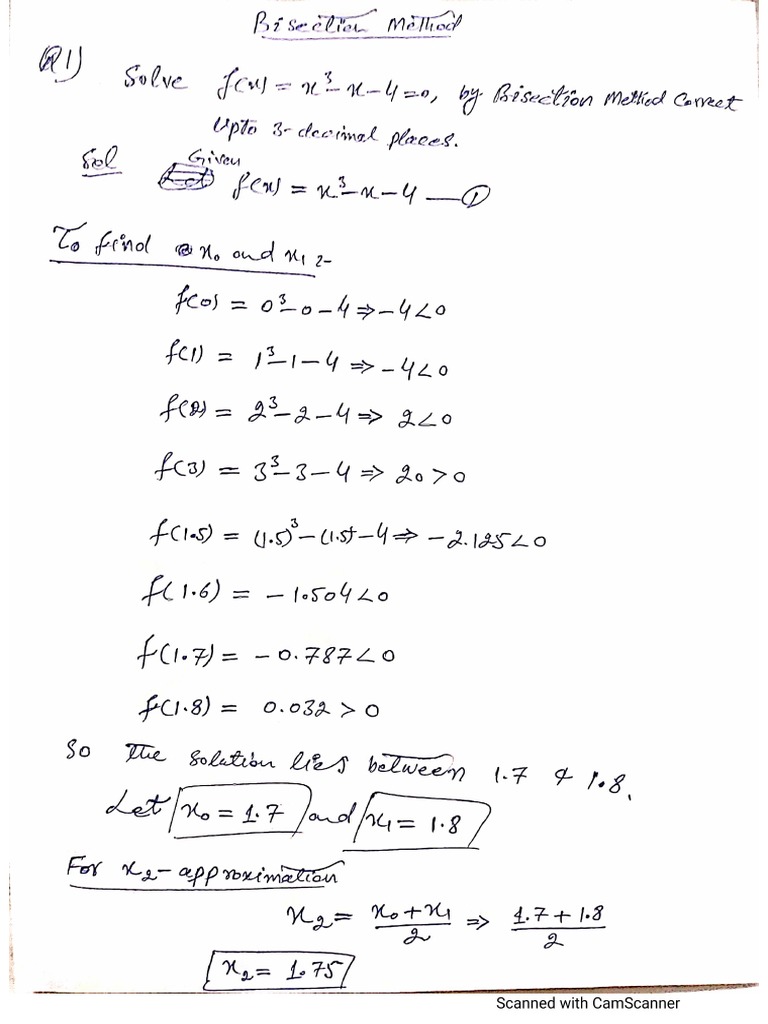 Bisection Method
Q1) Solve f(x) = x³ - x - 4 = 0, by Bisection Method Correct
Upto 3-decimal places.
Sol Given f(x) = x³ - x - 4 — ①
To find x₀ and x₁ :-
f(0) = 0³ - 0 - 4 ⇒ -4 < 0
f(1) = 1³ - 1 - 4 ⇒ -4 < 0
f(2) = 2³ - 2 - 4 ⇒ 2 < 0
f(3) = 3³ - 3 - 4 ⇒ 20 > 0
f(1.5) = (1.5)³ - (1.5) - 4 ⇒ -2.125 < 0
f(1.6) = -1.504 < 0
f(1.7) = -0.787 < 0
f(1.8) = 0.032 > 0
So the solution lies between 1.7 & 1.8.
Let x₀ = 1.7 and x₁ = 1.8
For x₂-approximation
x₂ = (x₀ + x₁)/2 ⇒ (1.7 + 1.8)/2
x₂ = 1.75
Scanned with CamScanner